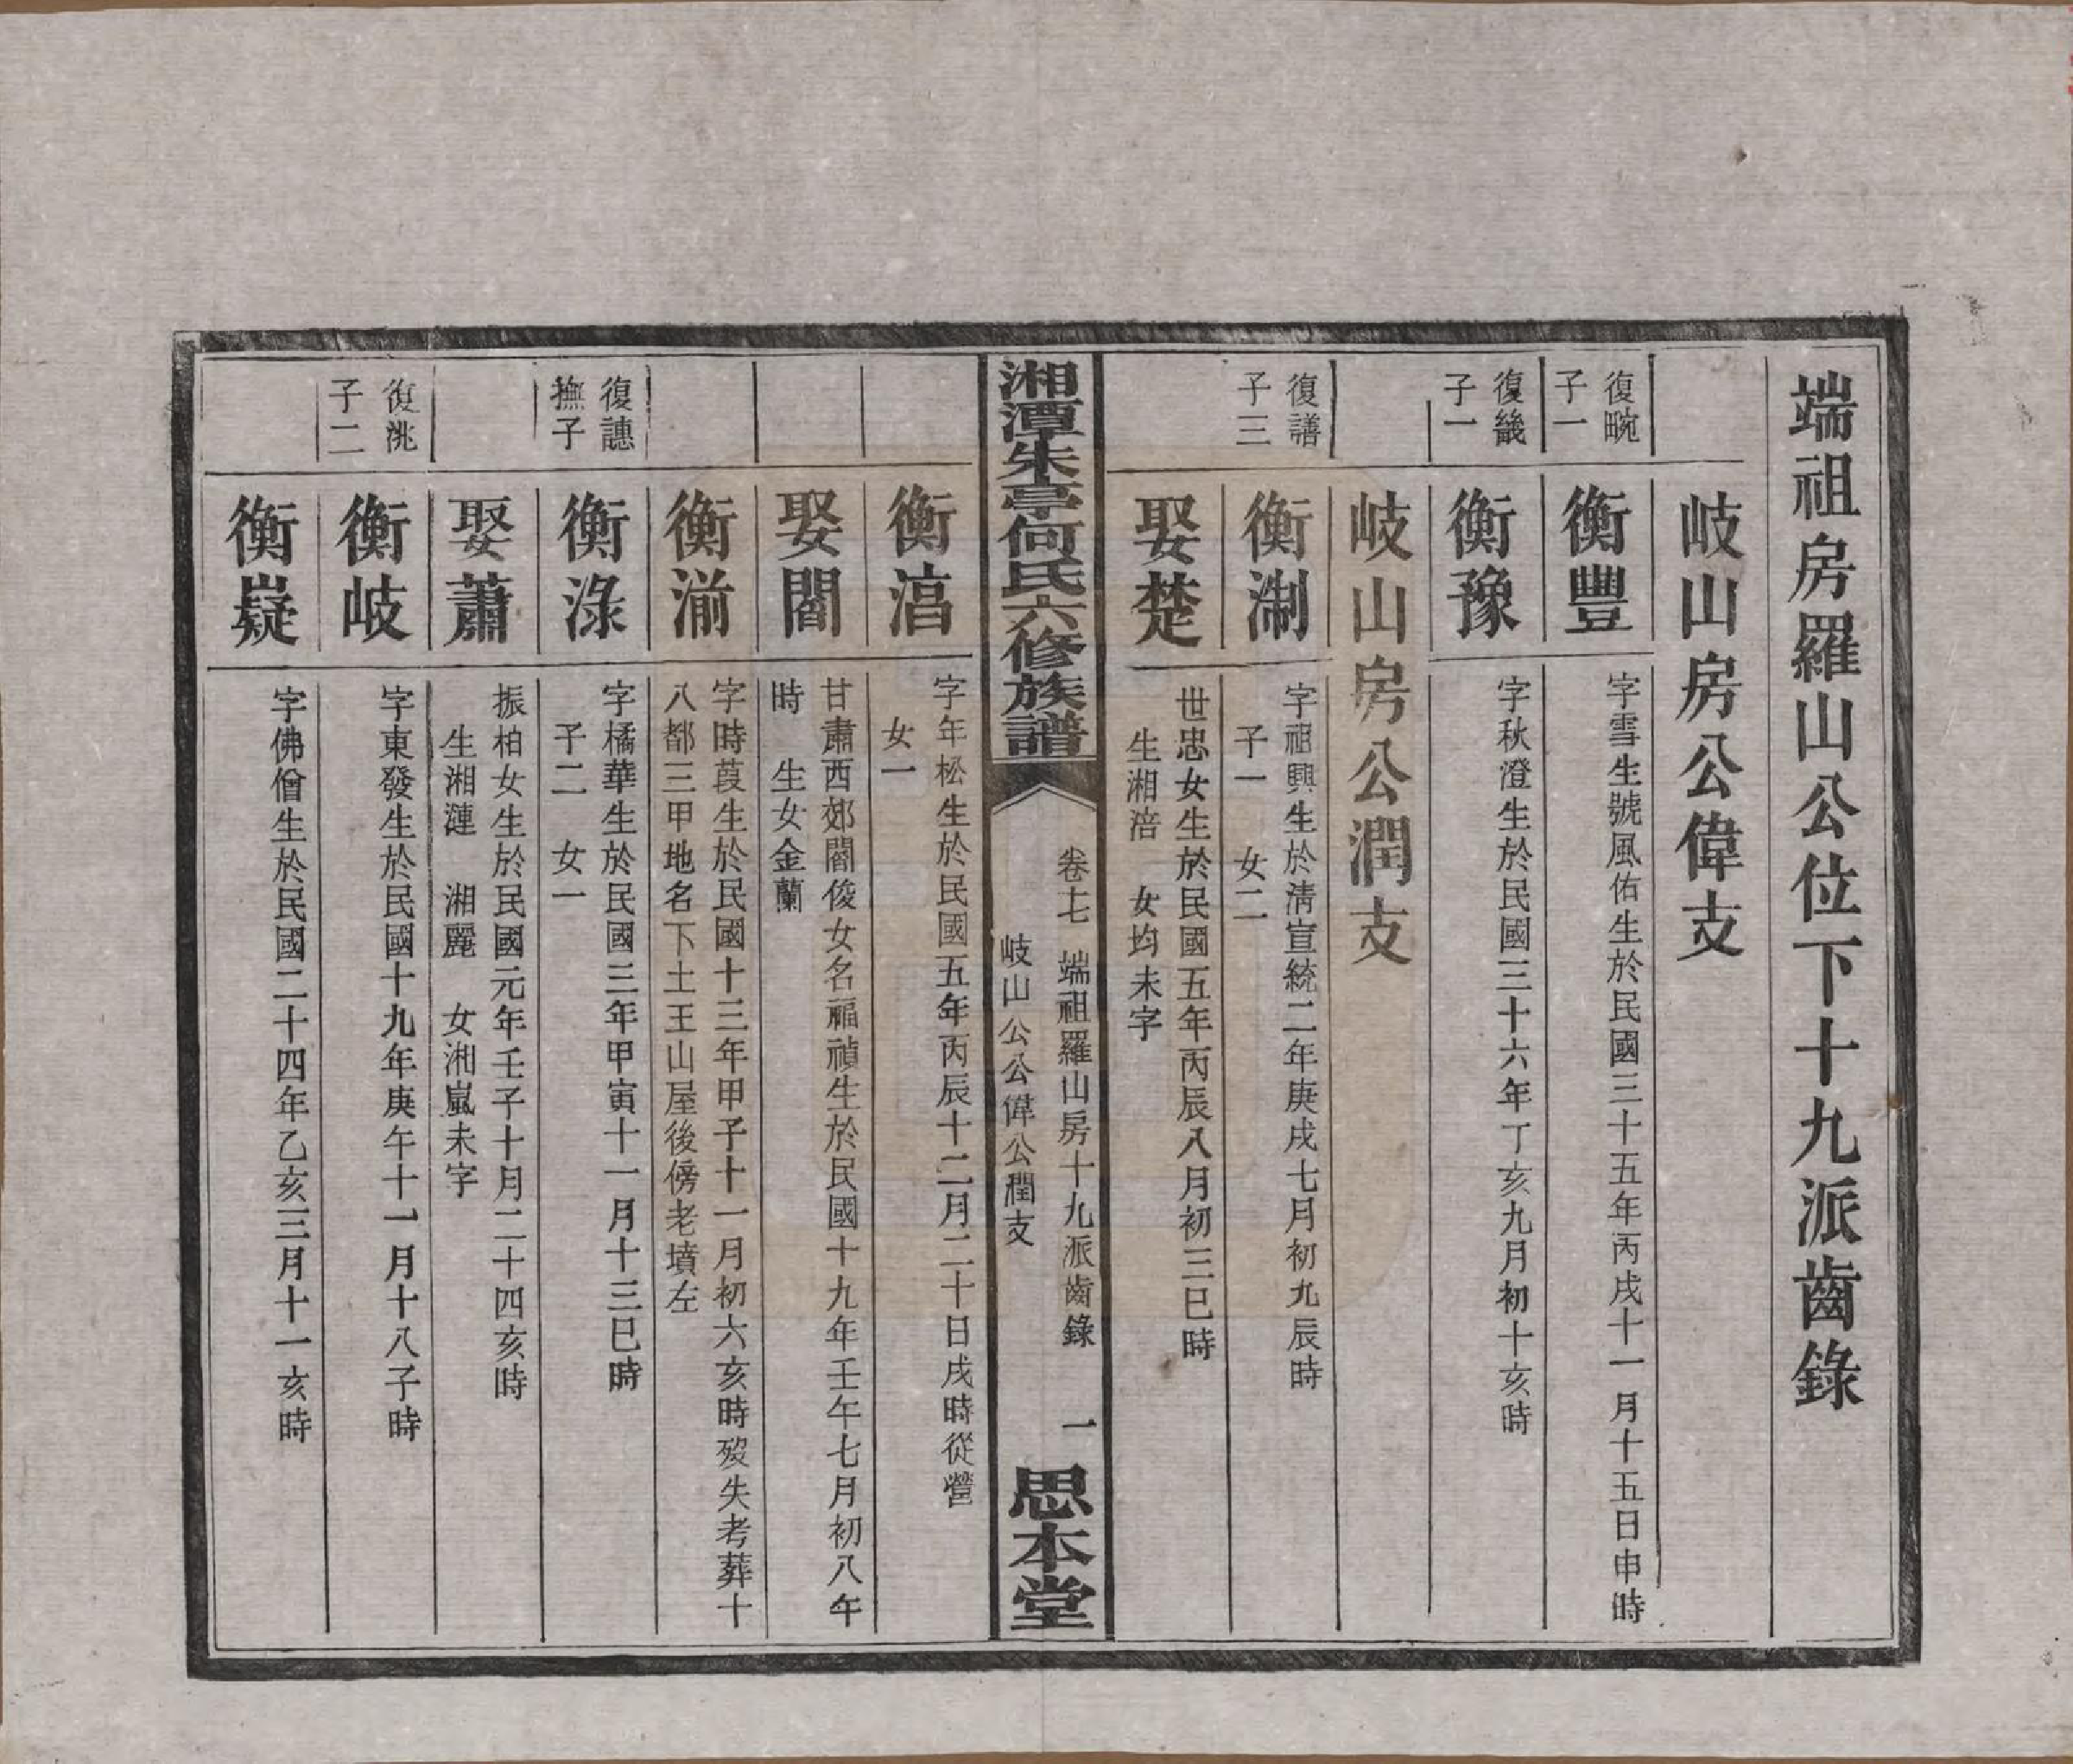 端祖房羅山公位下十九派齒錄
岐山房公偉支
復畹
子一
衡豐
字雪生號風佑生於民國三十五年丙戌十一月十五日申時
復畿
子一
衡豫
字秋澄生於民國三十六年丁亥九月初十亥時
岐山房公潤支
復譜
子三
衡淛
字祖興生於清宣統二年庚戌七月初九辰時
子一　女二
娶楚
世忠女生於民國五年丙辰八月初三巳時
生湘涪　女均未字
湘潭朱亭何氏六修族譜
卷十七　端祖羅山房十九派齒錄　一
岐山公公偉公潤支
思本堂
衡湻
字年松生於民國五年丙辰十二月二十日戌時從營
女一
娶閻
甘肅西郊閻俊女名福禎生於民國十九年壬午七月初八午
時　生女金蘭
衡湔
字時葭生於民國十三年甲子十一月初六亥時歿失考葬十
八都三甲地名下土王山屋後傍老墳左
復譓
撫子
衡淥
字橘華生於民國三年甲寅十一月十三巳時
子二　女一
娶蕭
振柏女生於民國元年壬子十月二十四亥時
生湘漣　湘麗　女湘嵐未字
復洮
子二
衡岐
字東發生於民國十九年庚午十一月十八子時
衡嶷
字佛僧生於民國二十四年乙亥三月十一亥時